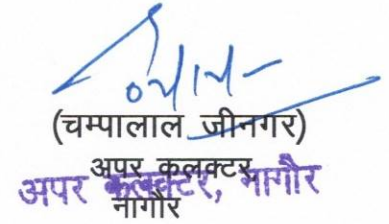 (चम्पालाल जीनगर)
अपर कलक्टर,
अपर कलक्टर, नागौर
नागौर